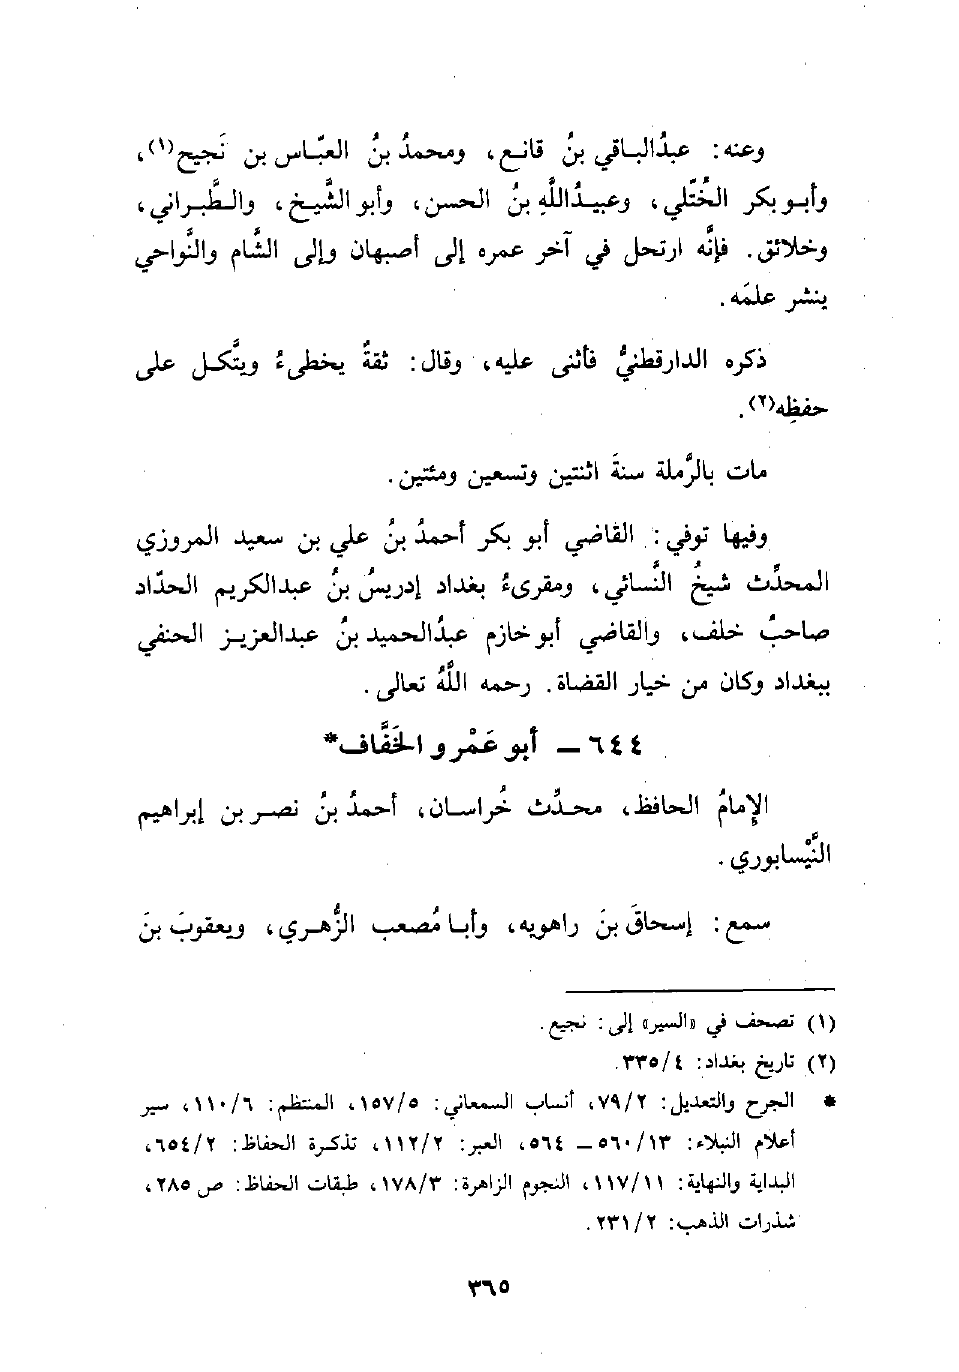 وعنه: عبدُالباقي بنُ قانع، ومحمدُ بنُ العبَّاس بن نَجيح(١)،
وأبو بكر الخُتَّلي، وعبيدُاللَّهِ بنُ الحسن، وأبو الشَّيخ، والطَّبراني،
وخلائق. فإنَّه ارتحل في آخر عمره إلى أصبهان وإلى الشَّام والنَّواحي
ينشر علمَه.
ذكره الدارقطنيُّ فأثنى عليه، وقال: ثقةٌ يخطىءُ ويتَّكل على
حفظِه(٢).
مات بالرَّملة سنةَ اثنتين وتسعين ومئتين.
وفيها توفي: القاضي أبو بكر أحمدُ بنُ علي بن سعيد المروزي
المحدِّث شيخُ النَّسائي، ومقرىءُ بغداد إدريسُ بنُ عبدالكريم الحدّاد
صاحبُ خلف، والقاضي أبو خازم عبدُالحميد بنُ عبدالعزيز الحنفي
ببغداد وكان من خيار القضاة. رحمه اللَّهُ تعالى.
٦٤٤ – أبو عَمْرو الخَفَّاف*
الإِمامُ الحافظ، محدِّث خُراسان، أحمدُ بنُ نصر بن إبراهيم
النَّيْسابوري.
سمع: إسحاقَ بنَ راهويه، وأبا مُصعب الزُّهري، ويعقوبَ بنَ
(١) تصحف في «السير» إلى: نجيع.
(٢) تاريخ بغداد: ٣٣٥/٤.
* الجرح والتعديل: ٧٩/٢، أنساب السمعاني: ١٥٧/٥، المنتظم: ١١٠/٦، سير
أعلام النبلاء: ٥٦٠/١٣ – ٥٦٤، العبر: ١١٢/٢، تذكرة الحفاظ: ٦٥٤/٢،
البداية والنهاية: ١١٧/١١، النجوم الزاهرة: ١٧٨/٣، طبقات الحفاظ: ص ٢٨٥،
شذرات الذهب: ٢٣١/٢.
٣٦٥